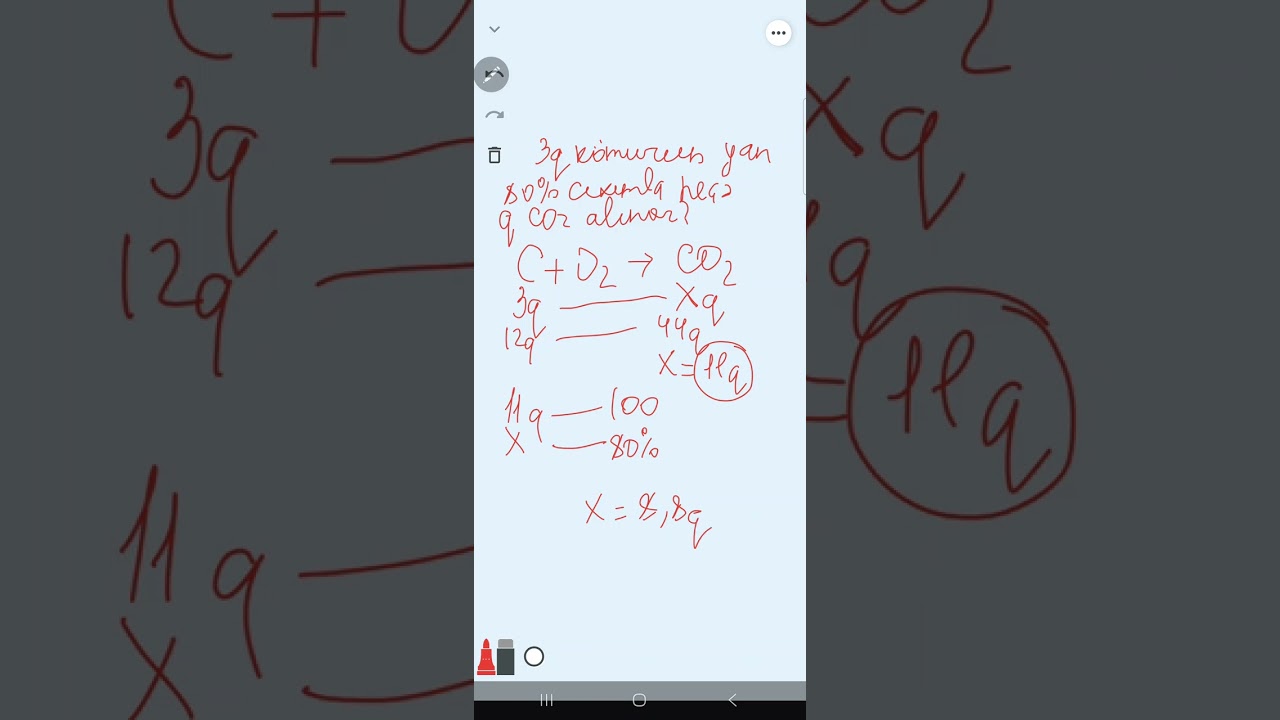 3q kömürün yan
80% çıxımla neçə
q CO2 alınar?
C + O2 → CO2
3q — Xq
12q — 44q
X = 11q
11q — 100
X — 80%
X = 8,8q